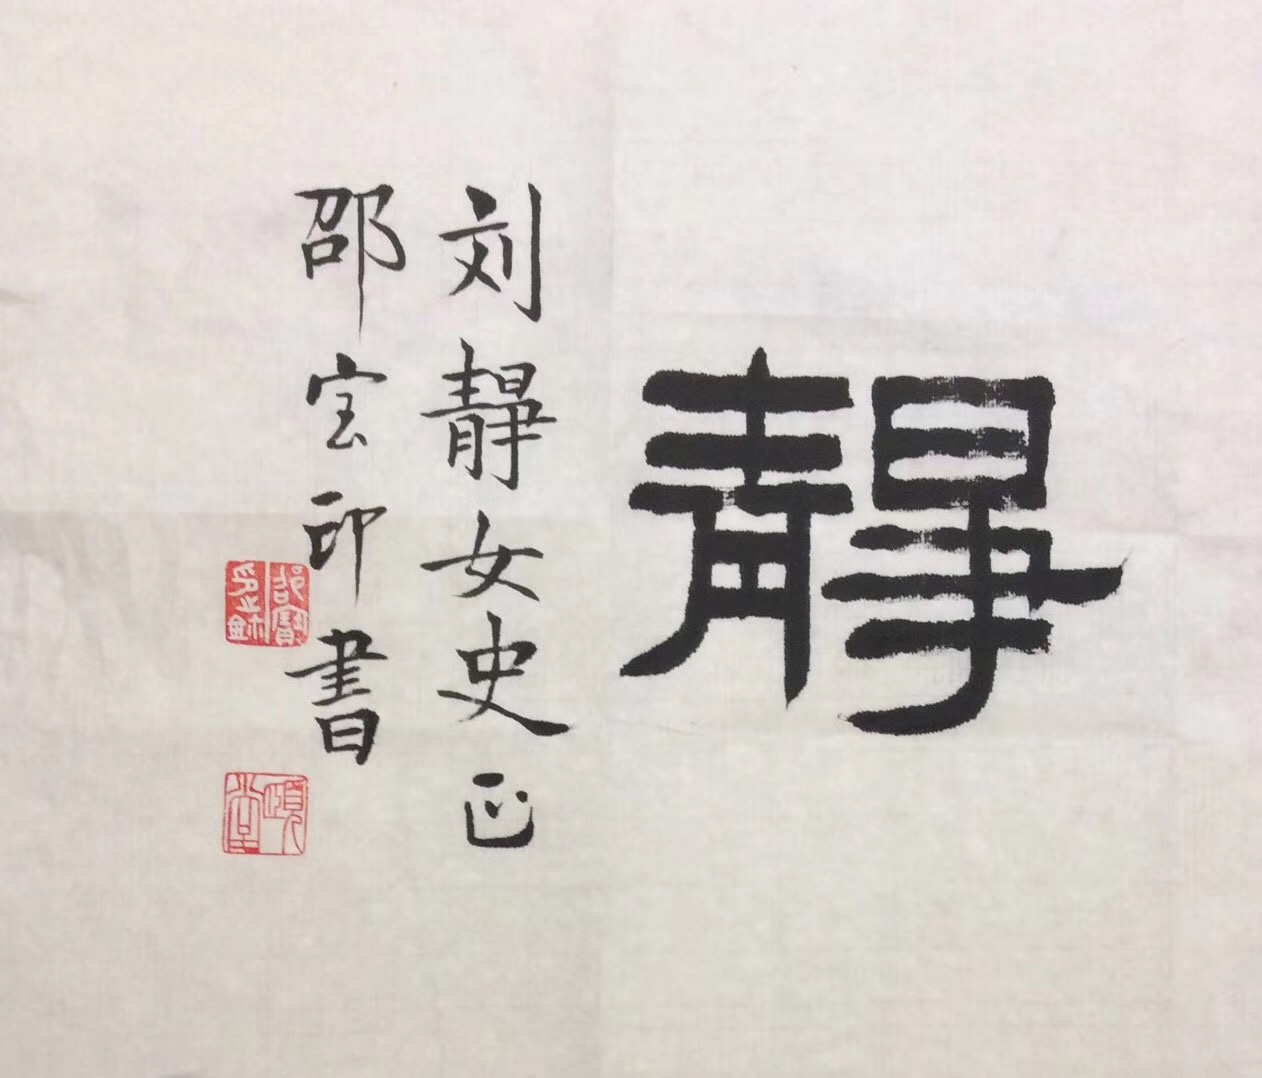 靜
刘靜女史正
邵宝印書